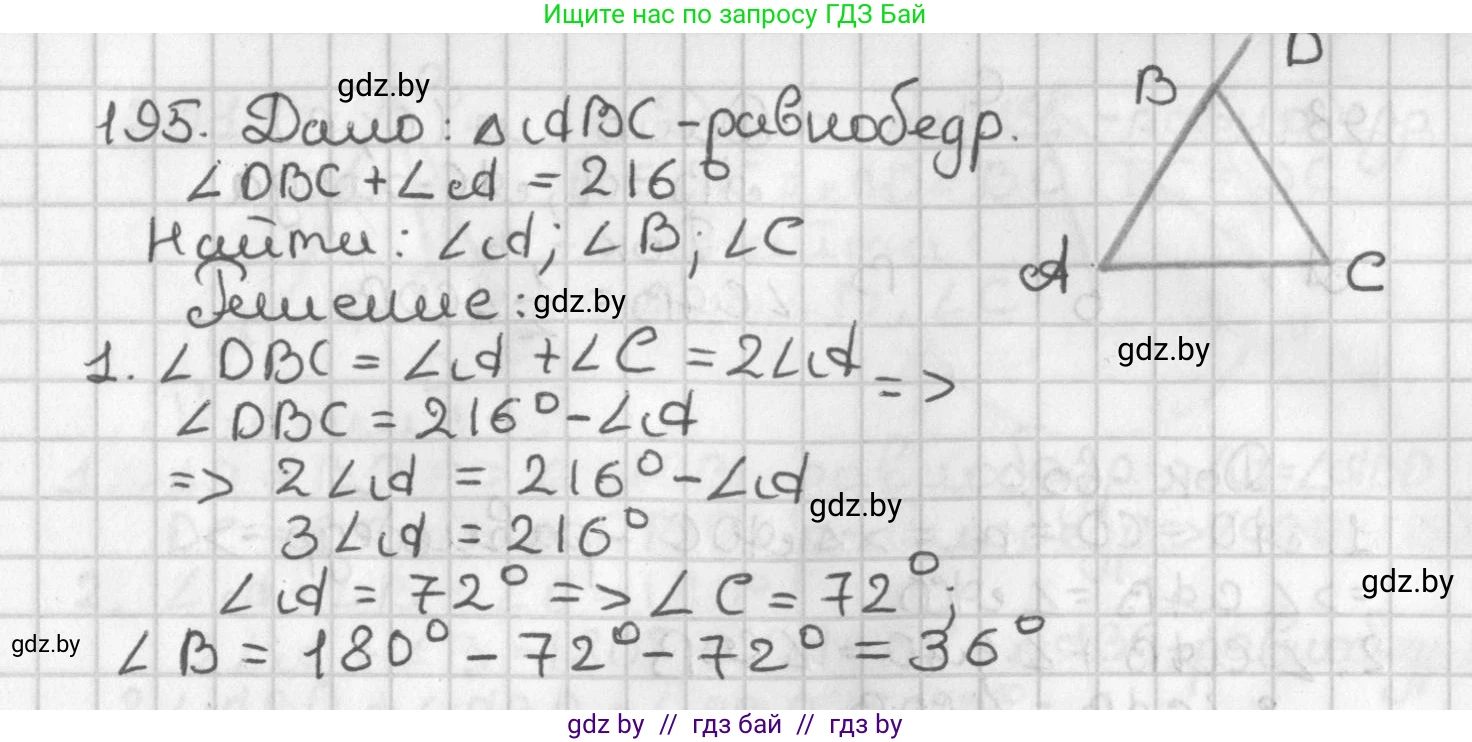 Ищите нас по запросу ГДЗ Бай
gdz.by
195. Дано: △ABC - равнобедр.
∠DBC + ∠A = 216°
Найти: ∠A; ∠B; ∠C
Решение: gdz.by
1. ∠DBC = ∠A + ∠C = 2∠A =>
∠DBC = 216° - ∠A
=> 2∠A = 216° - ∠A
gdz.by
3∠A = 216°
∠A = 72° => ∠C = 72°;
∠B = 180° - 72° - 72° = 36°
B D
A C
gdz.by
gdz.by
gdz.by
gdz by // гдз бай // гдз by